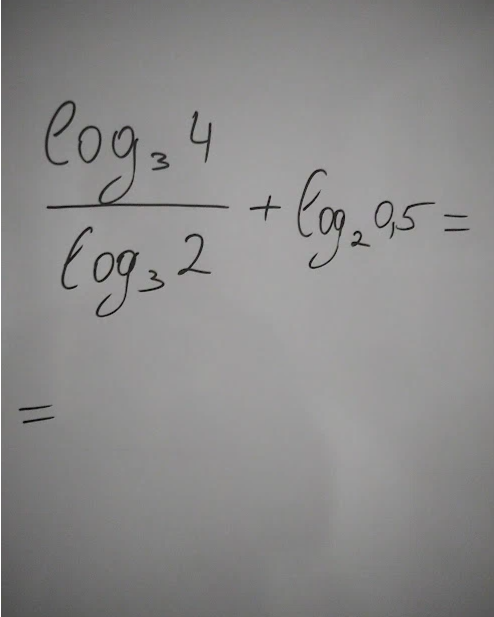 log₃ 4 / log₃ 2 + log₂ 0,5 =
=